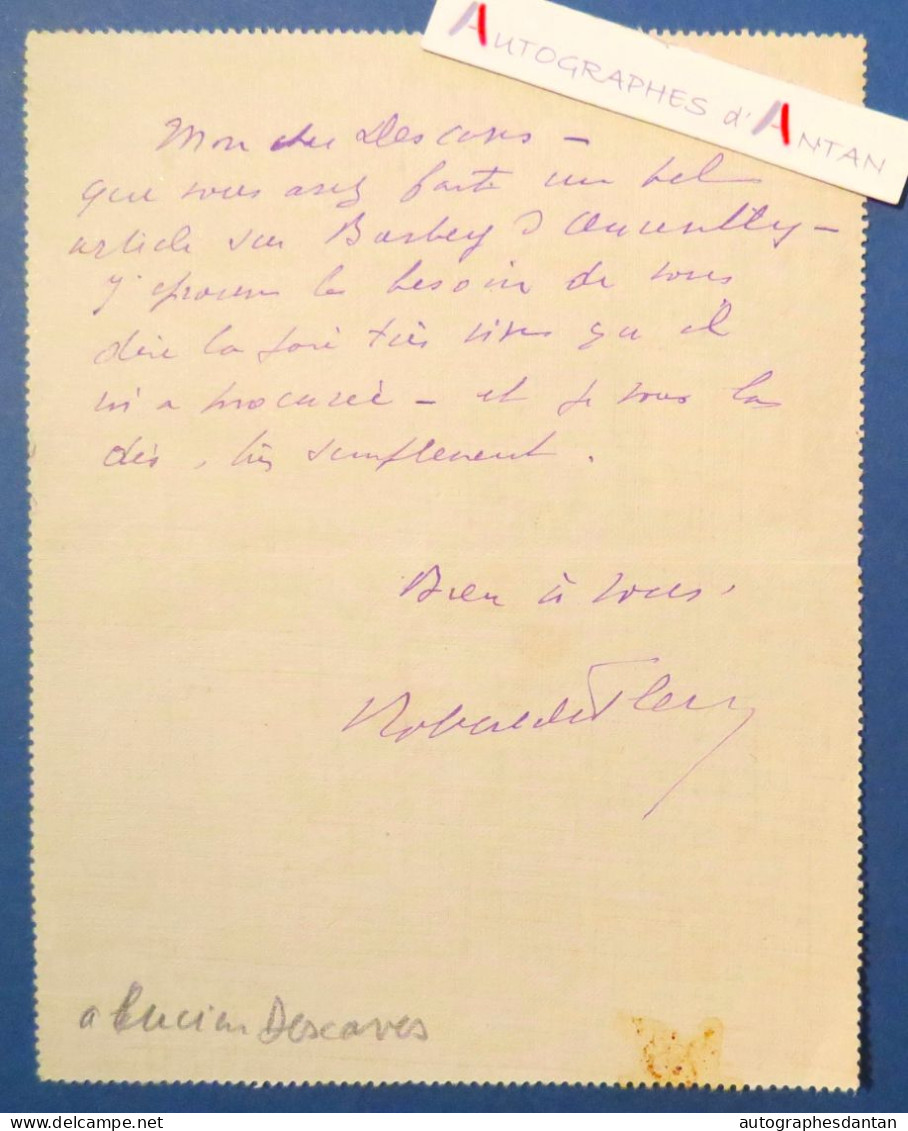 AUTOGRAPHES d'ANTAN
Mon cher Descaves –
que vous avez fait un bel
article sur Barbey d'Aurevilly –
J'éprouve le besoin de vous
dire la joie très vive qu'il
m'a procurée – et je vous la
dis, très simplement.
Bien à vous,
Robert de Flers
a Lucien Descaves
delcampe.net
autographesdantan